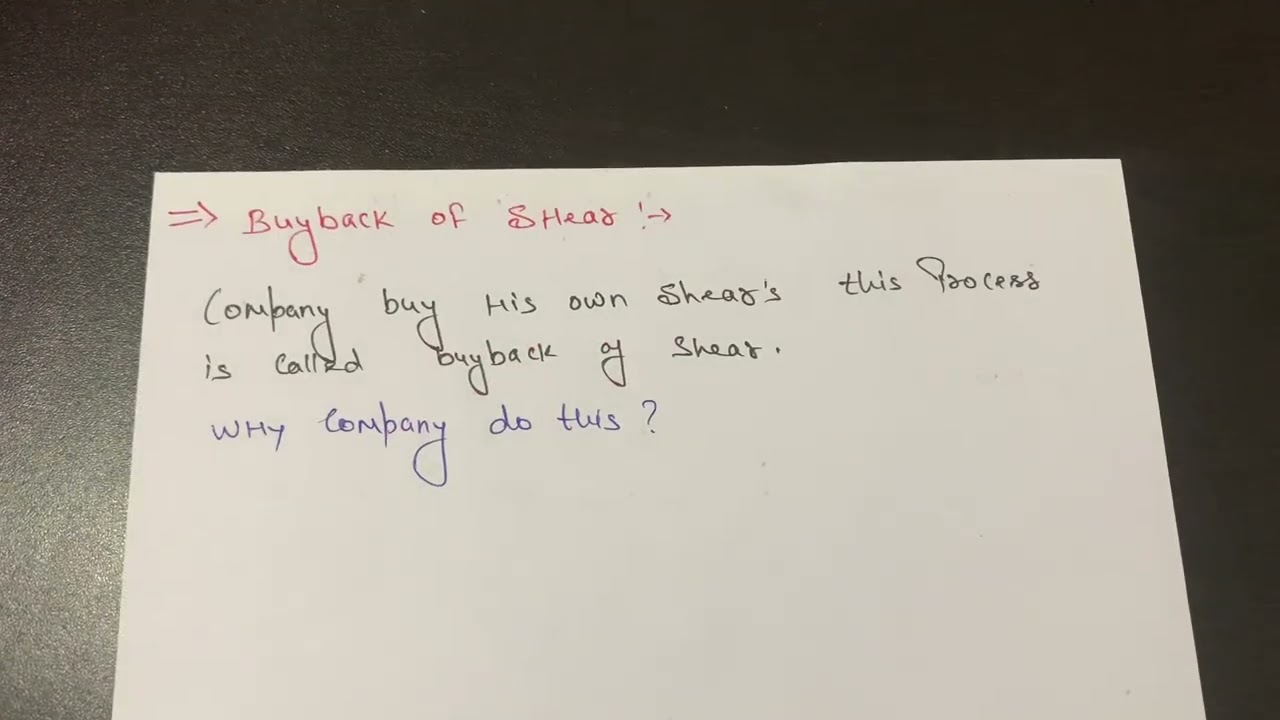 ⇒ Buyback of SHear :→
Company buy His own Shear's this Process
is called buyback of Shear.
WHy Company do this ?